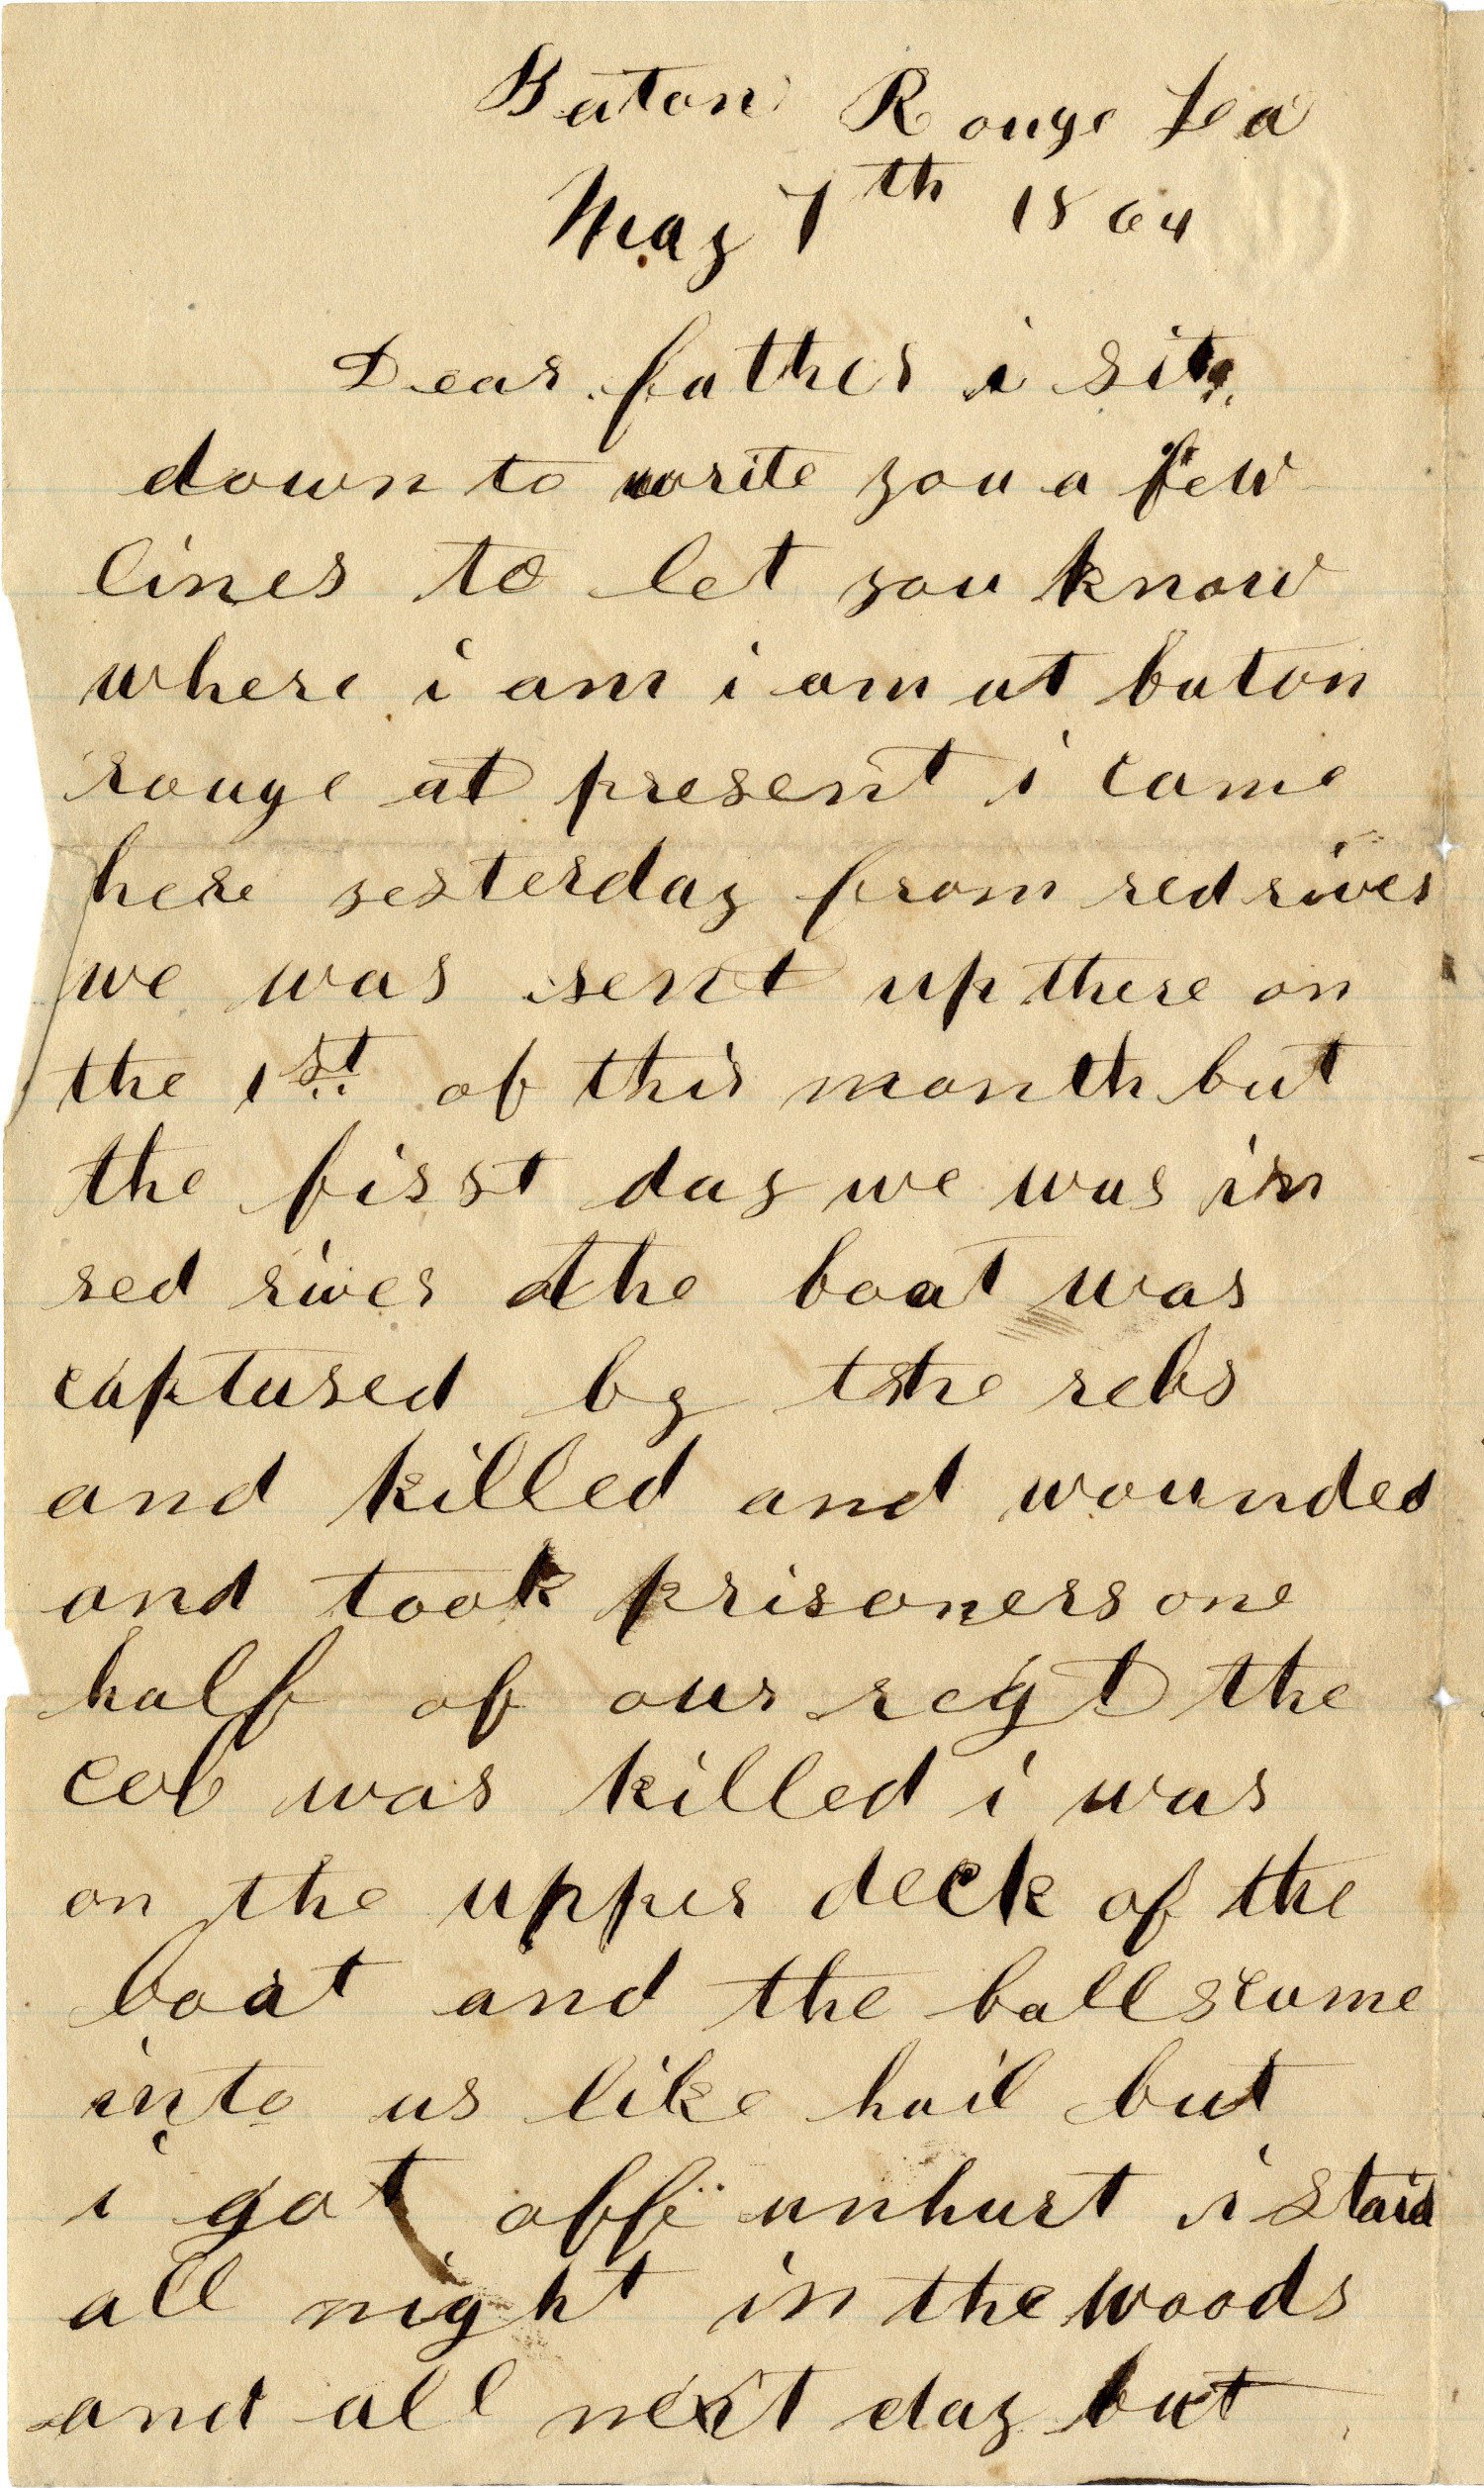 Baton Rouge La
May 7th 1864
Dear father i sit
down to write you a few
lines to let you know
where i am i am at baton
rouge at present i came
here yesterday from red river
we was sent up there on
the 1st of this month but
the first day we was in
red river the boat was
captured by the rebs
and killed and wounded
and took prisoners one
half of our regt the
col was killed i was
on the upper deck of the
boat and the balls came
into us like hail but
i got offe unhurt i staid
all night in the woods
and all next day but